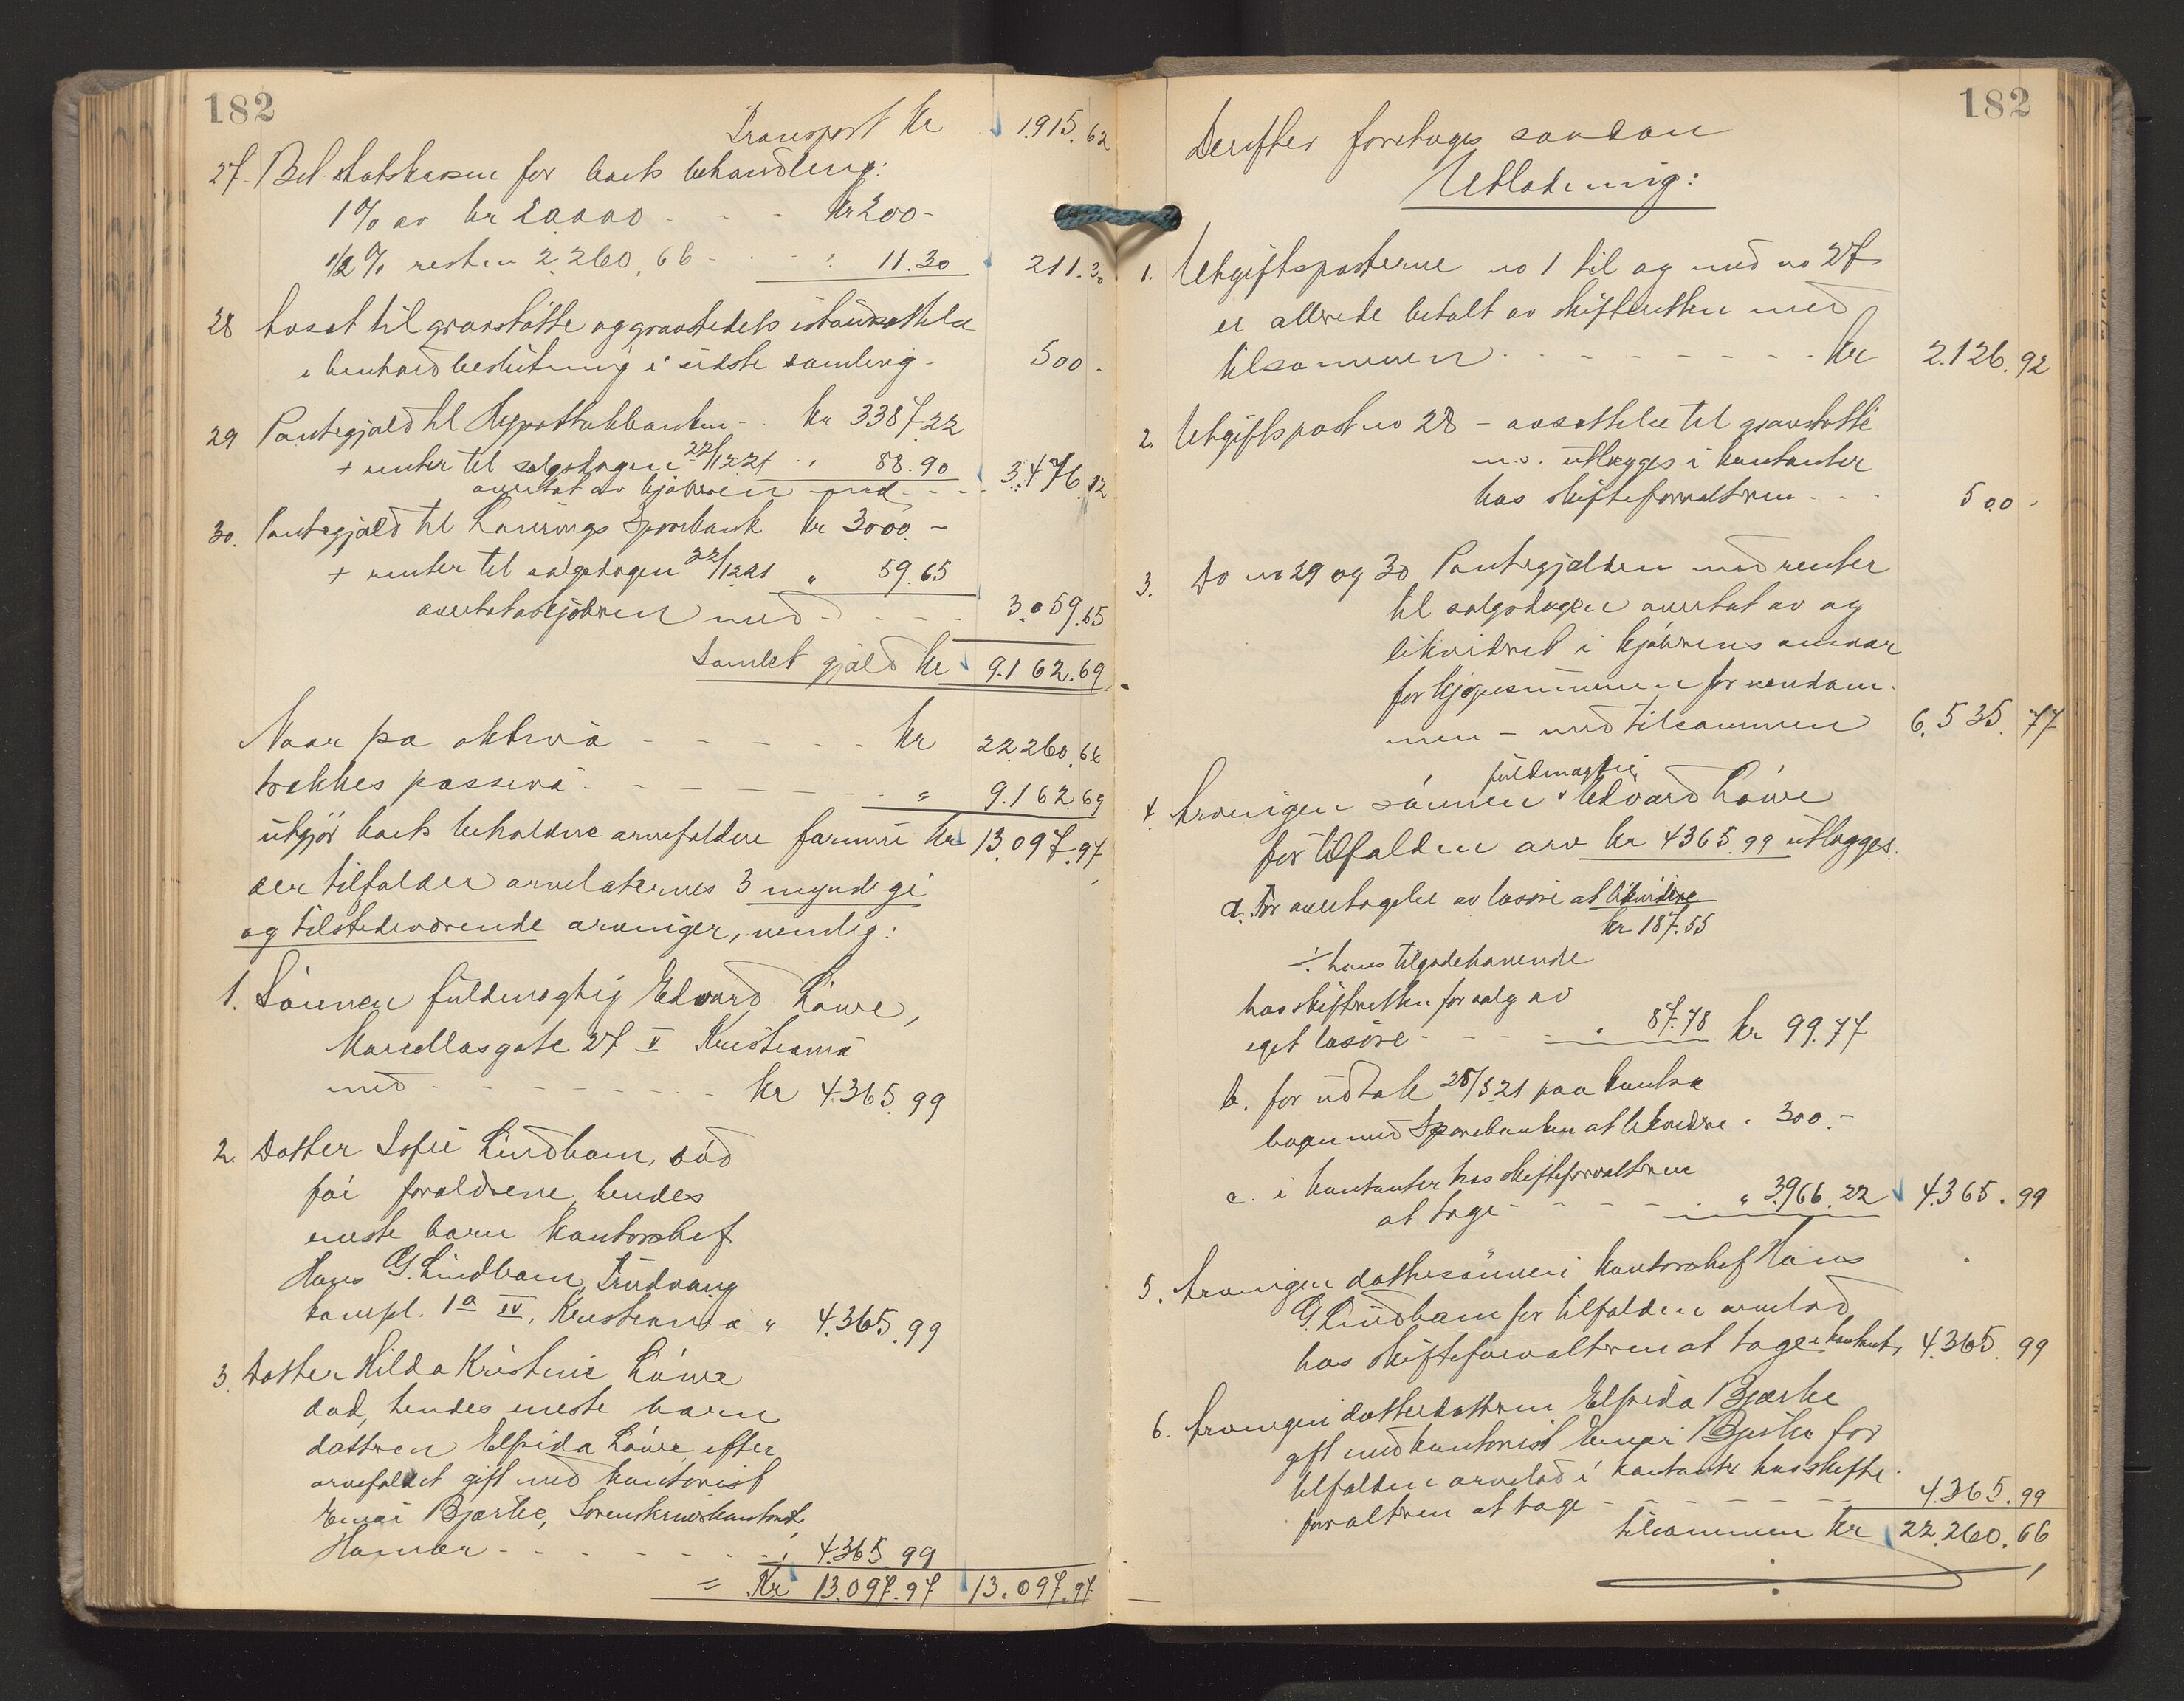 182
Transport kr 1.915.62
27. Bet. statskassen for boets behandling:
1 % av kr 20.000 - - - kr 200 -
1/2 % resten 2.260,66 - - - " 11.30 211.30
28 Avsat til gravstøtte og gravstedets istandsættelse
i henhold beslutning i sidste samling - 500 -
29 Pantegjæld til Hypothekbanken - kr 3387.22
+ renter til salgsdagen 22/12.21 " 88.90
overtat av kjøberen med - - - 3.476.12
30. Pantegjæld til Sparebank kr 3000. -
+ renter til salgsdagen 22/12.21 " 59.65
overtat av kjøberen med - - - - 3.059.65
Samlet gjæld kr 9.162.69
Naar fra aktiva - - - - - kr 22.260.66
trækkes passiva - - - - - - " 9.162.69
utgjør boets beholdne arvefaldne formue kr 13.097.97
der tilfalder arveladernes 3 myndige
og tilstedeværende arvinger, nemlig:
1. Sønnen fuldmægtig Edvard Løwe,
Marcellasgate 27 V Kristiania
med - - - - - - - kr 4.365.99
2. Datter Sofie Lindham, død
før forældrene, hendes
eneste barn kontorchef
Hans G. Lindham, Trudvang
kompl. 1a IV, Kristiania " 4.365.99
3. Datter Hilda Kristine Løwe
død, hendes eneste barn
datteren Elfrida Løwe, efter
arvefaldet gift med kontorist
Einar Bjerke, Sorenskriverkontoret,
Hamar - - - - - - - " 4.365.99
= Kr 13.097.97 13.097.97
182
Derefter foretoges saadan
Utlodning:
1. Utgiftsposterne no 1 til og med no 27
er allerede betalt av skifteretten med
tilsammen - - - - - - - kr 2.126.92
2. Utgiftspost no 28 - avsættelse til gravstøtte
m.v. utlægges i kontanter
hos skifteforvalteren - - - 500 -
3. Do no 29 og 30 Pantegjælden med renter
til salgsdagen overtat av og
likvidert i kjøberens ansvar
for kjøpesummen for eiendom-
men - med tilsammen 6.535.77
4. Arvingen sønnen fuldmægtig Edvard Løwe
for tilfalden arv kr 4365.99 utlægges:
a. For overtagelse av løsøre at likvidere
kr 187.55
÷ hans tilgodehavende
hos skifteretten for salg av
eget løsøre - - - - " 87.78 kr 99.77
b. for uttak 28/5 21 paa bankbogen
med Sparebanken at likvidere " 300. -
c. i kontanter hos skifteforvalteren
at tage - - - - - " 3.966.22 4.365.99
5. Arvingen dattersønnen kontorchef Hans
G. Lindham for tilfalden arvelod
hos skifteforvalteren at tage i kontanter 4.365.99
6. Arvingen datterdatteren Elfrida Bjerke
gift med kontorist Einar Bjerke for
tilfalden arvelod i kontanter hos skifte-
forvalteren at tage - - - - - - - 4.365.99
tilsammen kr 22.260.66